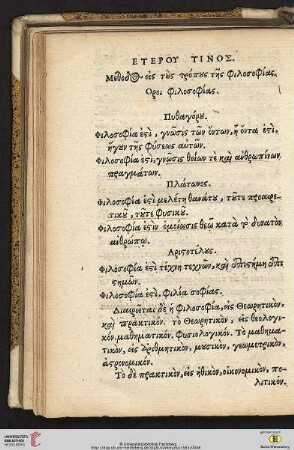 ΕΤΕΡΟΥ ΤΙΝΟΣ.
Μέθοδος εἰς τοὺς τρόπους τῆς φιλοσοφίας.
Ὅροι φιλοσοφίας.
Πυθαγόρου.
Φιλοσοφία ἐστὶ, γνῶσις τῶν ὄντων, ᾗ ὄντα ἐστὶ,
ἤγουν τῆς φύσεως αὐτῶν.
Φιλοσοφία ἐστὶ, γνῶσις θείων τὲ καὶ ἀνθρωπίνων
πραγμάτων.
Πλάτωνος.
Φιλοσοφία ἐστὶ μελέτη θανάτου, τοῦτε προαιρε-
τικοῦ, τοῦτε φυσικοῦ.
Φιλοσοφία ἐστὶν ὁμοίωσις θεῷ κατὰ τὸ δυνατὸν
ἀνθρώπῳ.
Ἀριστοτέλους.
Φιλοσοφία ἐστὶ τέχνη τεχνῶν, καὶ ἐπιστήμη ἐπι-
στημῶν.
Φιλοσοφία ἐστὶ, φιλία σοφίας.
Διαιρεῖται δὲ ἡ φιλοσοφία, εἰς θεωρητικὸν,
καὶ πρακτικόν. τὸ θεωρητικὸν, εἰς θεολογι-
κὸν, μαθηματικὸν, φυσιολογικόν. Τὸ μαθημα-
τικὸν, εἰς ἀριθμητικὸν, μουσικὸν, γεωμετρικὸν,
ἀστρονομικόν.
Τὸ δὲ πρακτικὸν, εἰς ἠθικὸν, οἰκονομικὸν, πο-
λιτικόν.
UNIVERSITÄTS-
BIBLIOTHEK
HEIDELBERG
© Universitätsbibliothek Heidelberg